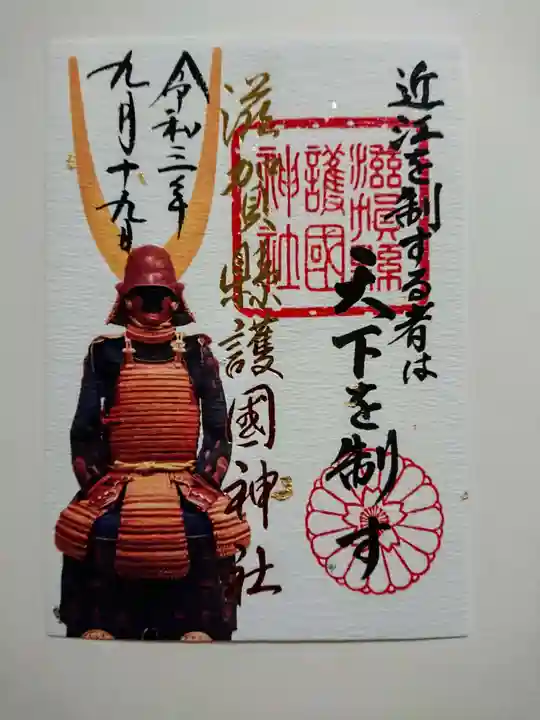 近江を制する者は
天下を制す
滋賀縣
護國
神社
滋賀縣護國神社
令和三年
九月十九日